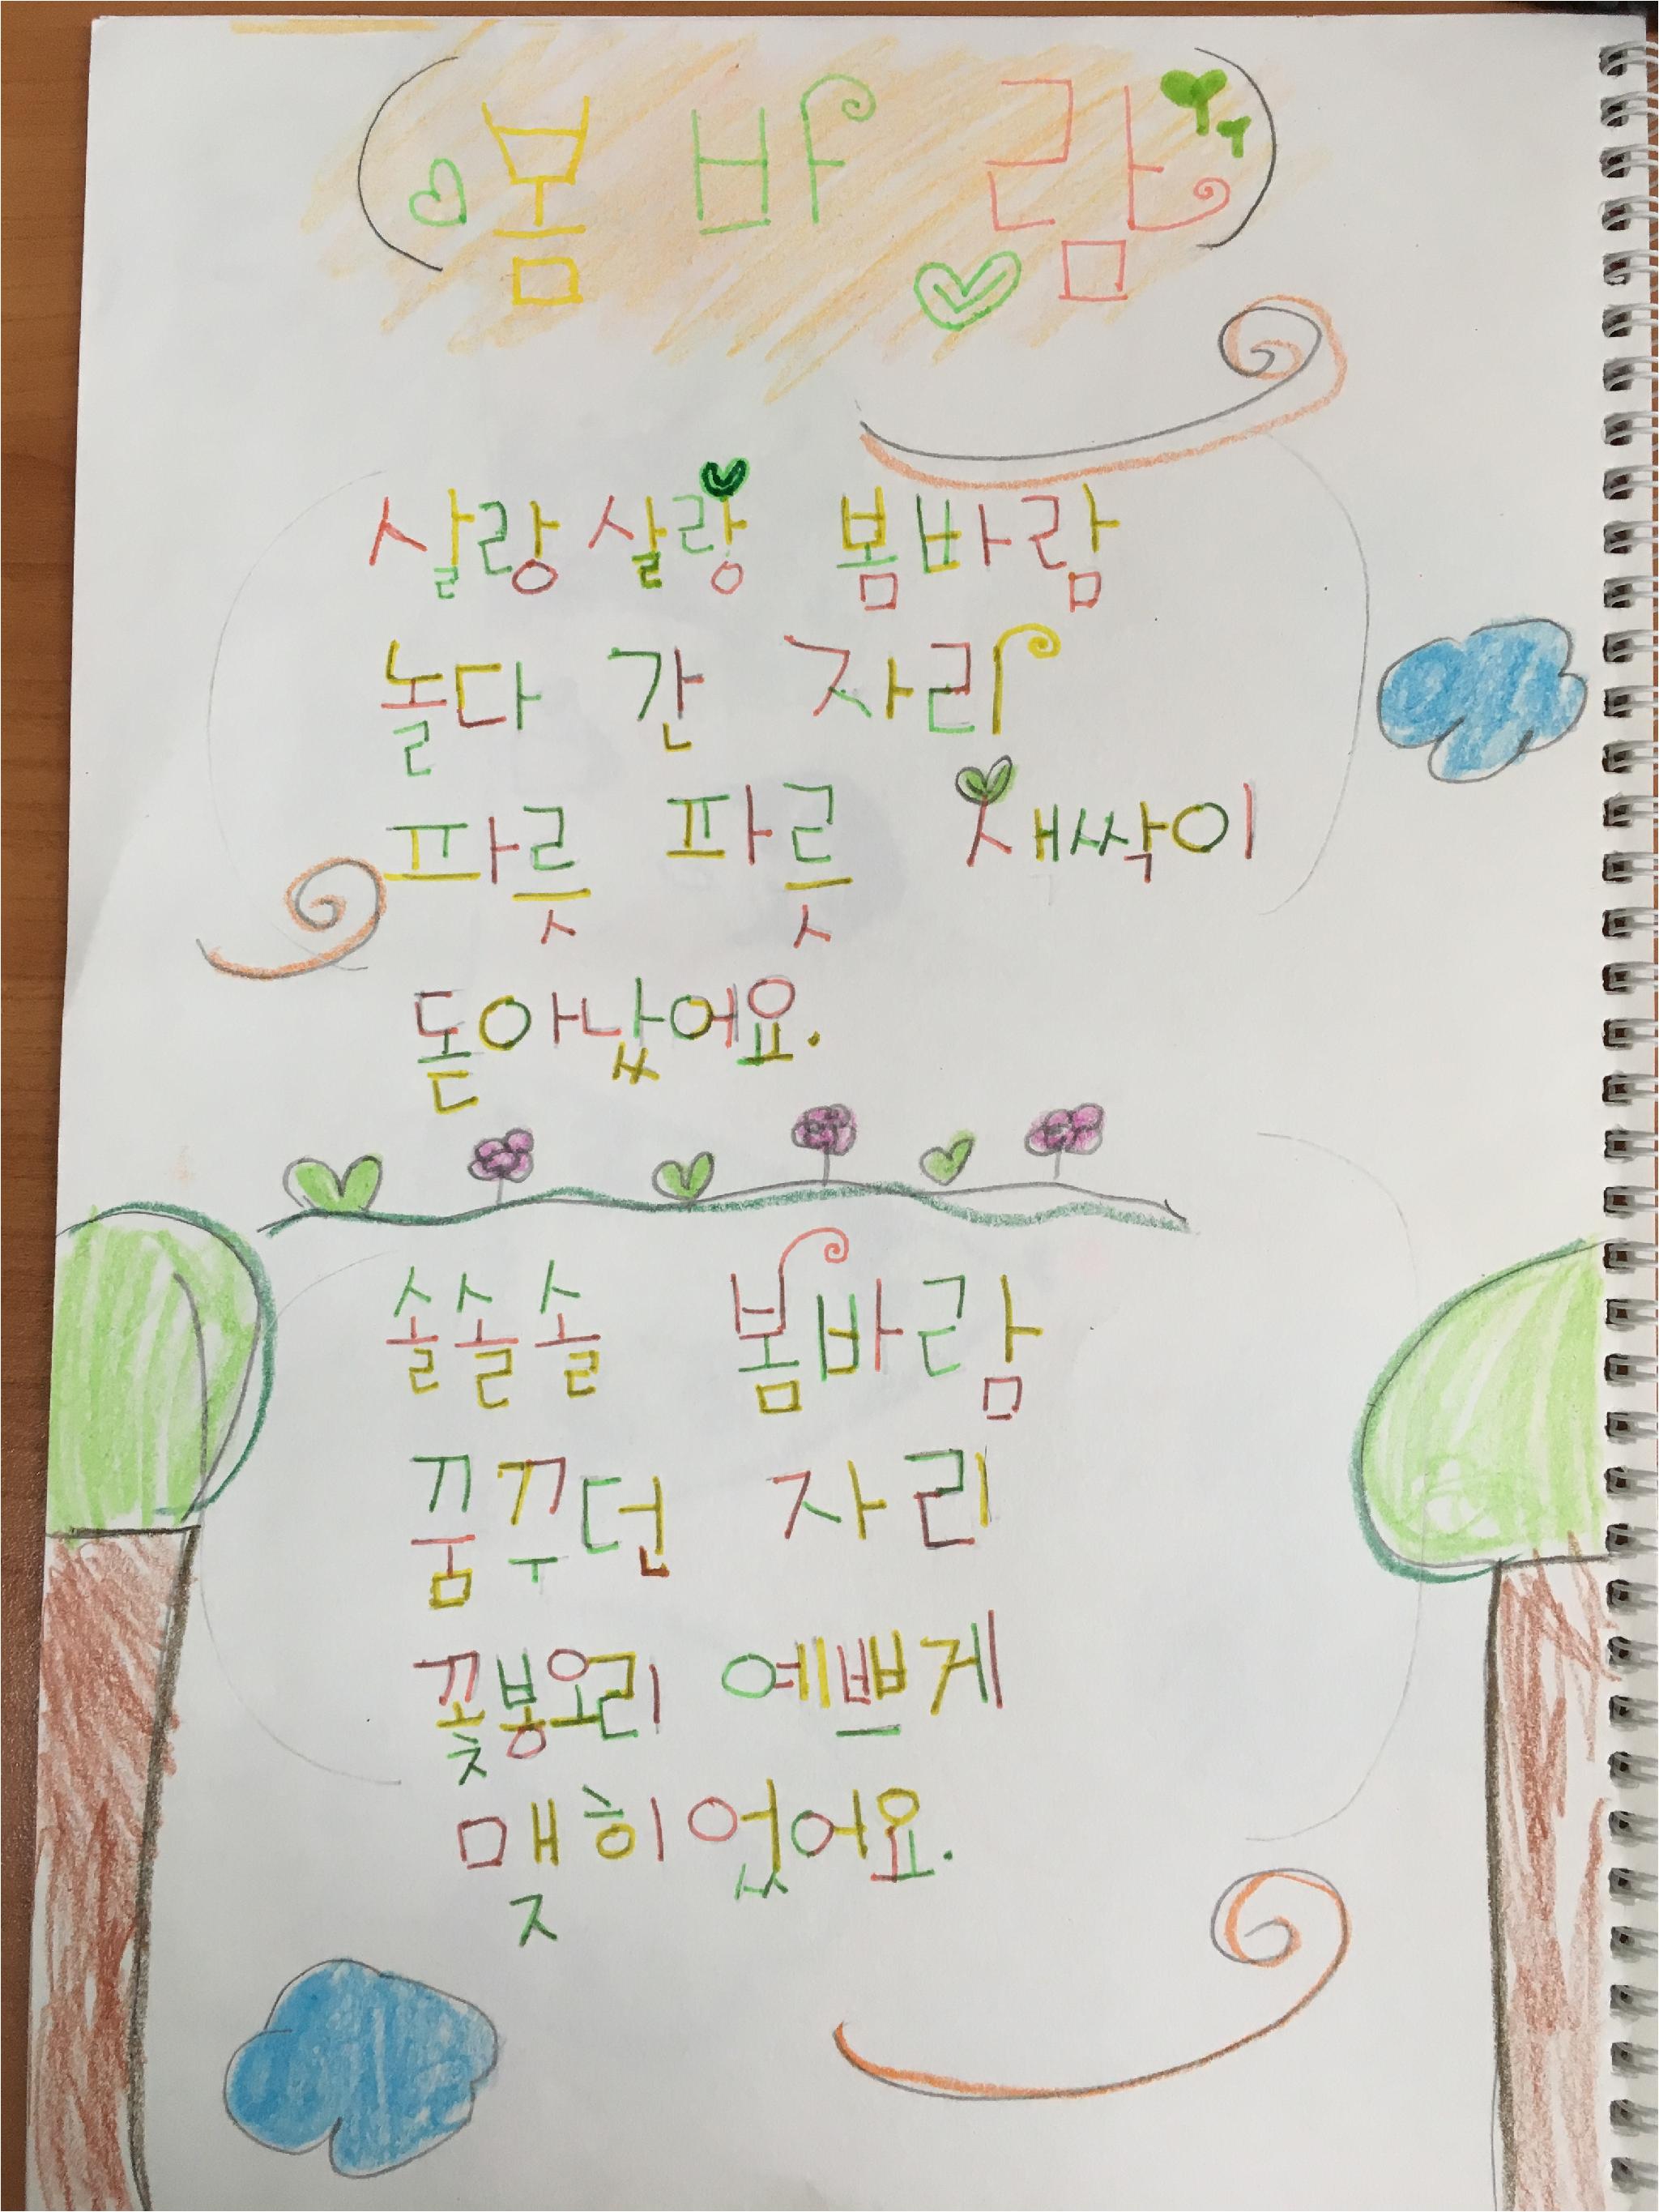 봄 바 람
살랑살랑 봄바람
놀다 간 자리
파릇 파릇 새싹이
돋아났어요.
솔솔솔 봄바람
꿈꾸던 자리
꽃봉오리 예쁘게
맺히었어요.